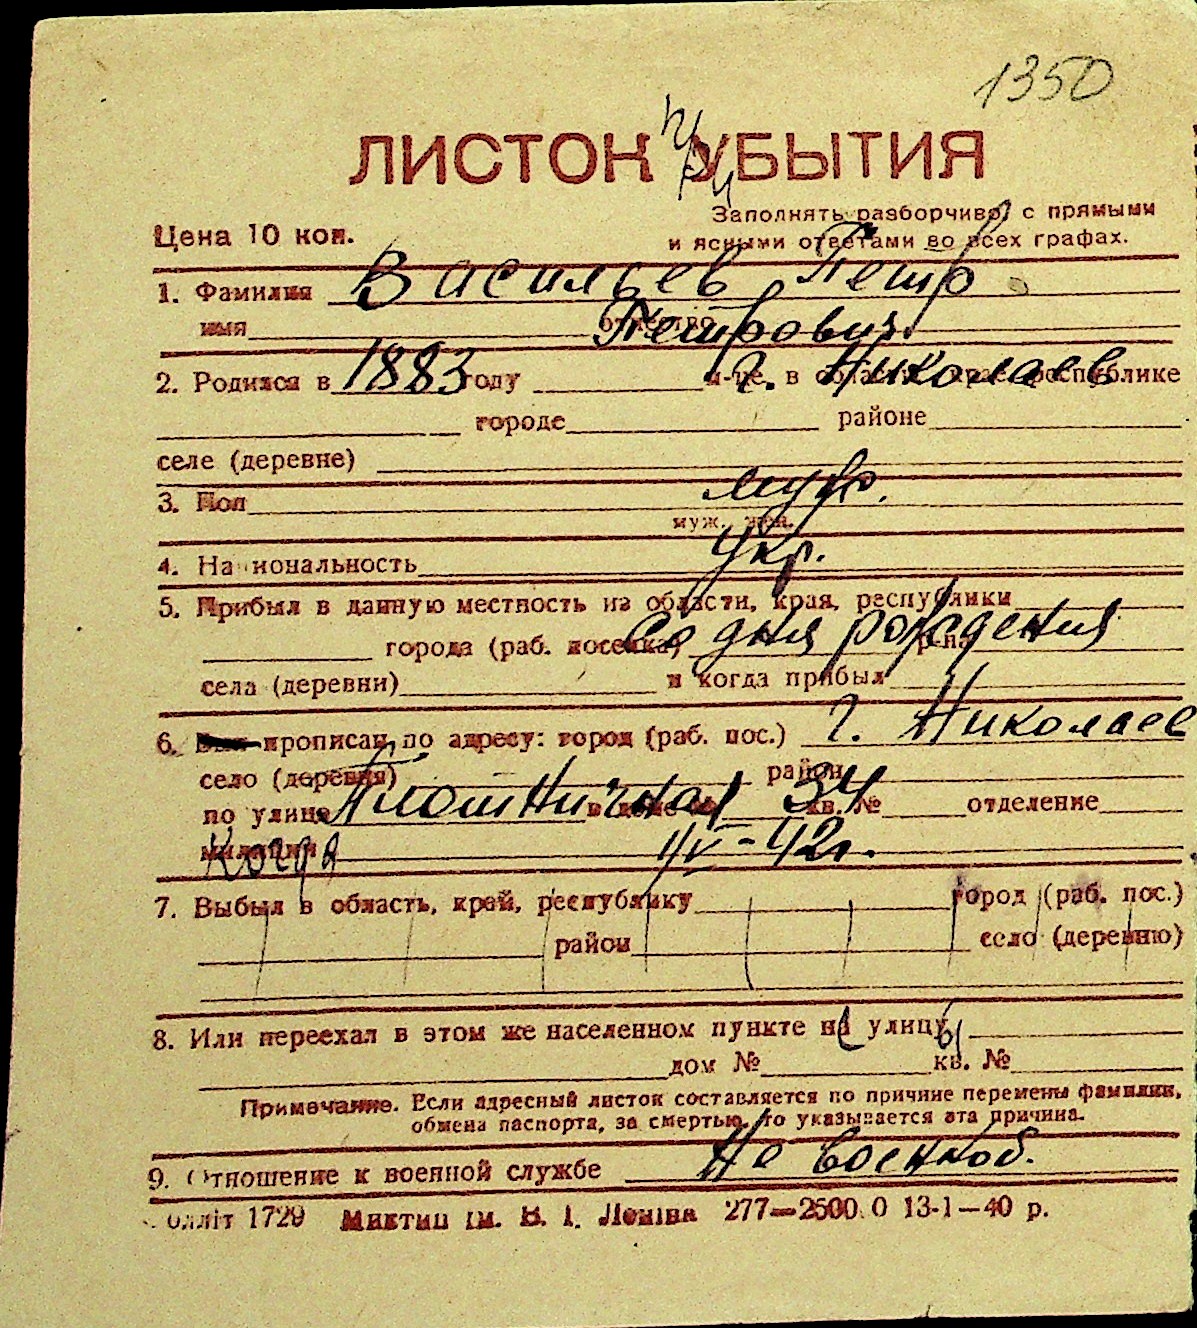 1350
ЛИСТОК УБЫТИЯ
Заполнять разборчиво, с прямыми
Цена 10 коп.
и ясными ответами во всех графах.
1. Фамилия Васильев Петр
имя отчество Петрович
2. Родился в 1883 году м-це, в области, крае, республике г. Николаев
городе районе
селе (деревне)
3. Пол муж.
муж. жен.
4. Национальность Укр.
5. Прибыл в данную местность из области, края, республики
города (раб. поселка) р-на Со дня рождения
села (деревни) и когда прибыл
6. прописан по адресу: город (раб. пос.) г. Николаев
село (деревня) район
по улице Плотничная в доме № 34 кв. № отделение
милиции Когда 1/IV-42г.
7. Выбыл в область, край, республику город (раб. пос.)
район село (деревню)
8. Или переехал в этом же населенном пункте на улицу
дом № кв. №
Примечание. Если адресный листок составляется по причине перемены фамилии,
обмена паспорта, за смертью, то указывается эта причина.
9. Отношение к военной службе Не военноб.
олліт 1729 Миктип ім. В. І. Леніна 277—2500.0 13-1—40 р.